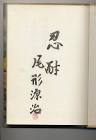 忍耐
尾形源治